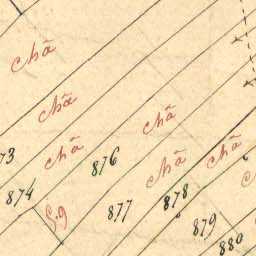 chã
chã
chã
chã
chã
chã
73
874
876
877
878
879
880